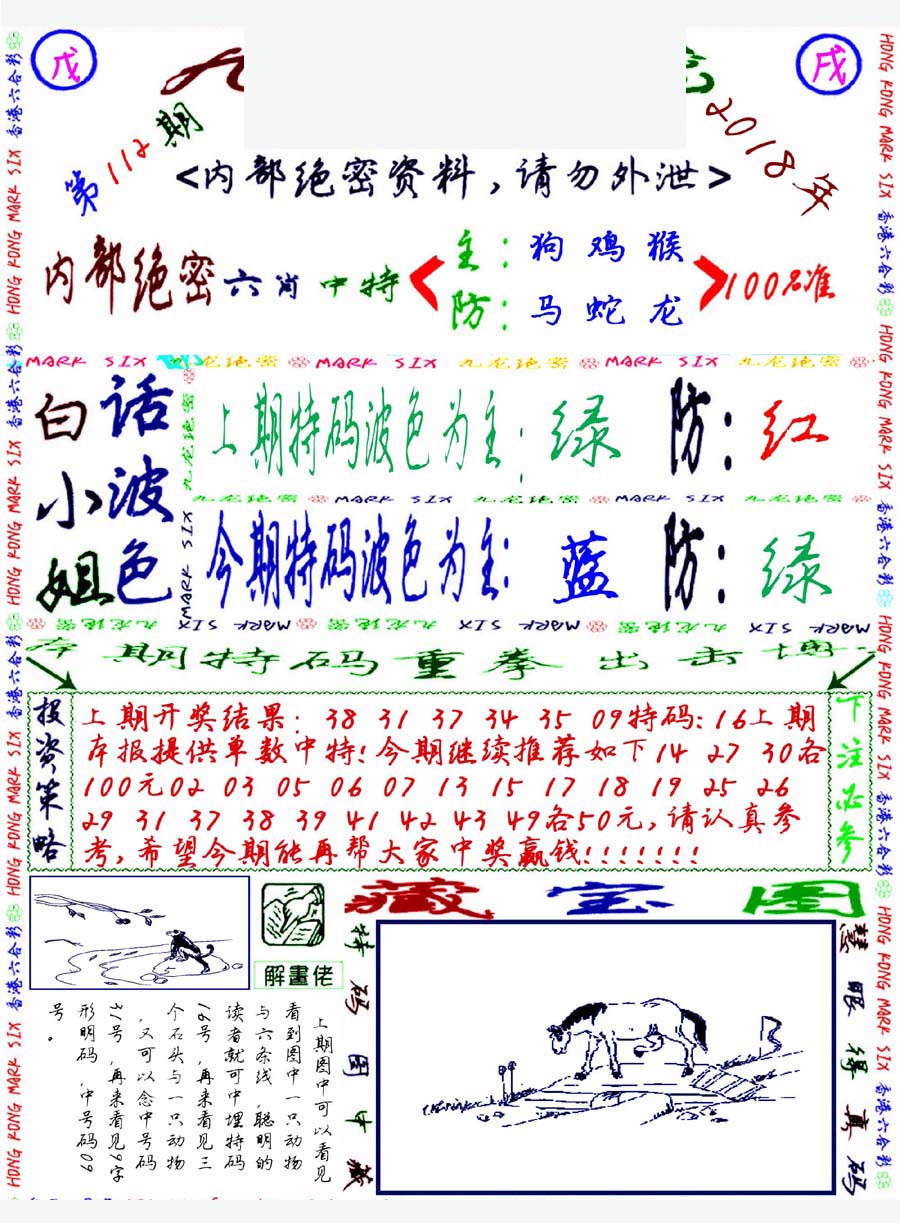 戊
戌
第112期
2018年
<内部绝密资料，请勿外泄>
内部绝密六肖中特
主：狗 鸡 猴
防：马 蛇 龙
100%准
MARK SIX 九龙绝密 MARK SIX 九龙绝密 MARK SIX 九龙绝密
白话
小波
姐色
上期特码波色为主：绿 防：红
九龙绝密 MARK SIX 九龙绝密 MARK SIX 九龙绝密
今期特码波色为主：蓝 防：绿
MARK SIX 九龙绝密 MARK SIX 九龙绝密 MARK SIX 九龙绝密
期特码重拳出击博
投资策略
上期开奖结果：38 31 37 34 35 09特码:16上期
本报提供单数中特!今期继续推荐如下14 27 30各
100元02 03 05 06 07 13 15 17 18 19 25 26
29 31 37 38 39 41 42 43 49各50元,请认真参
考,希望今期能再帮大家中奖赢钱!!!!!!!
下注必参
解畫佬
上期图中可以看见
看到图中一只动物
与六条线,聪明的
读者就可中埋特码
16号,再来看见三
个石头与一只动物
,又可以念中号码
31号,再来看见9字
形明码,中号码09
号。
藏宝图
特码图中藏
慧眼得真码
HONG KONG MARK SIX 香港六合彩
HONG KONG MARK SIX 香港六合彩